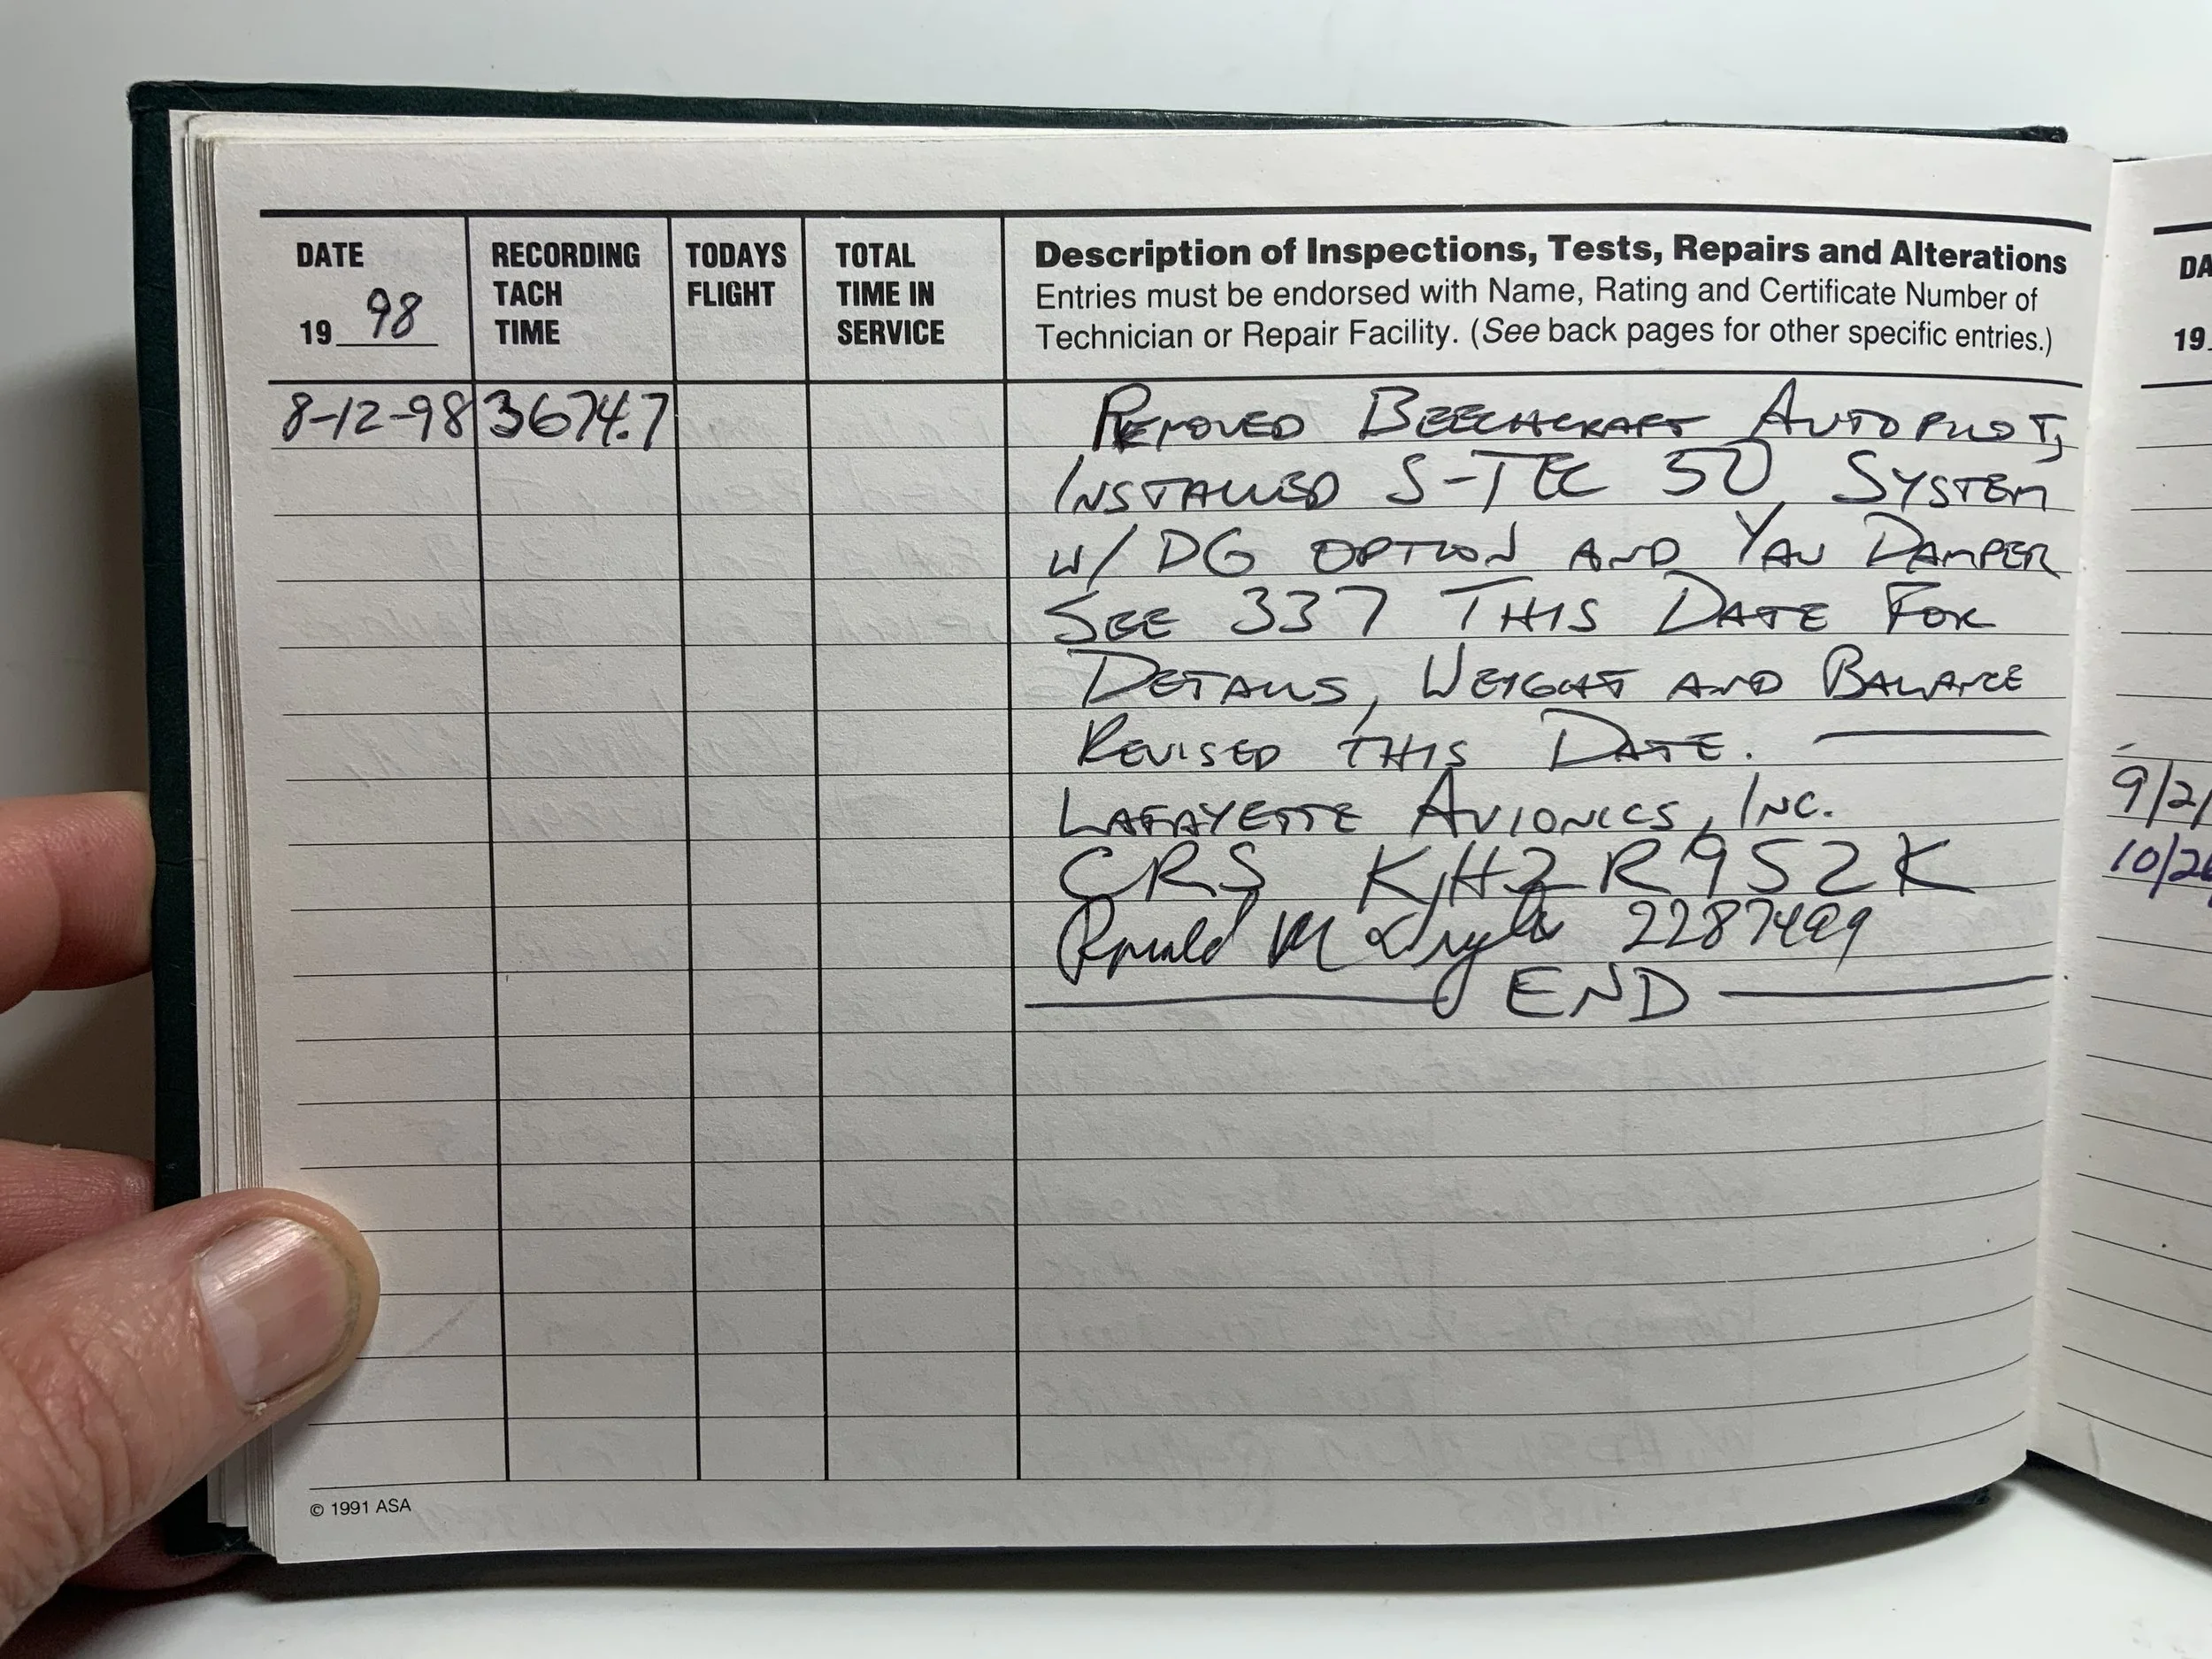 DATE
19 98
RECORDING
TACH
TIME
TODAYS
FLIGHT
TOTAL
TIME IN
SERVICE
Description of Inspections, Tests, Repairs and Alterations
Entries must be endorsed with Name, Rating and Certificate Number of
Technician or Repair Facility. (See back pages for other specific entries.)
8-12-98 3674.7 REMOVED BEECHCRAFT AUTOPILOT,
INSTALLED S-TEC 50 SYSTEM
W/ DG OPTION AND YAW DAMPER
SEE 337 THIS DATE FOR
DETAILS, WEIGHT AND BALANCE
REVISED THIS DATE.
LAFAYETTE AVIONICS, INC.
CRS KH2R952K
Ronald M 2287499
END
© 1991 ASA
DA
19
9/2/
10/26